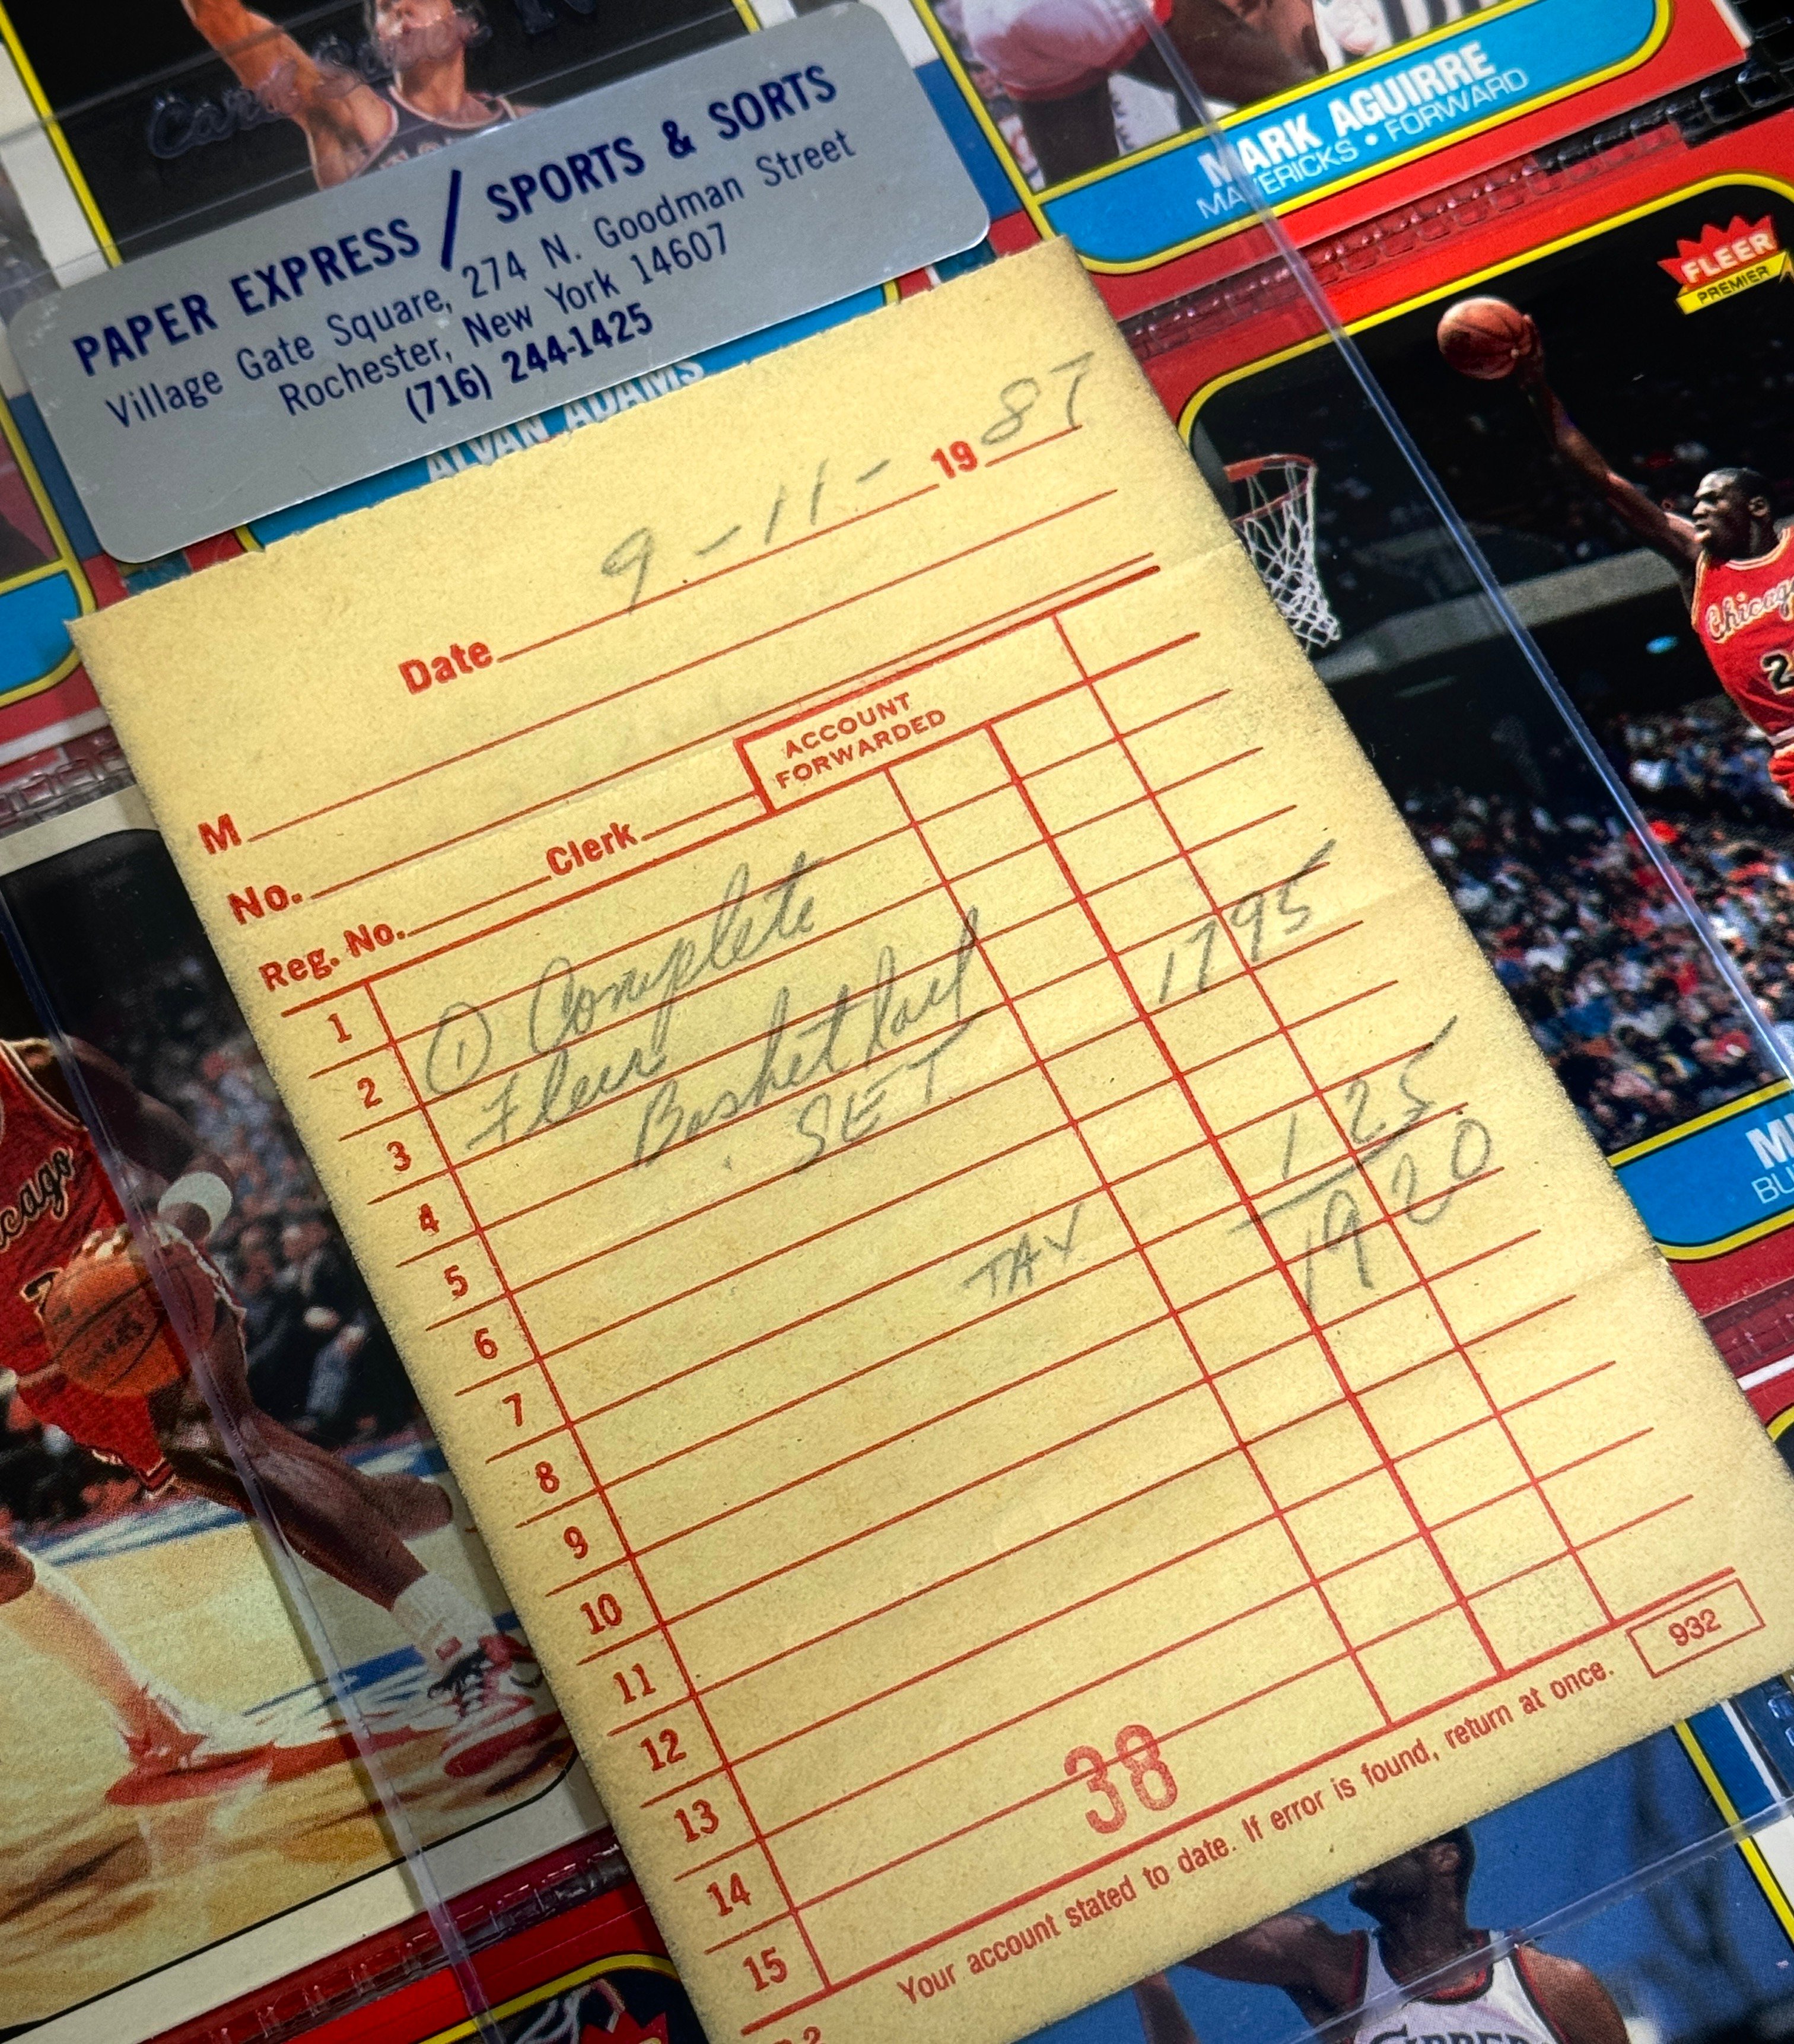 MARK AGUIRRE
MAVERICKS • FORWARD
FLEER
PREMIER
PAPER EXPRESS / SPORTS & SORTS
Village Gate Square, 274 N. Goodman Street
Rochester, New York 14607
(716) 244-1425
ALVAN ADAMS
Date 9-11- 19 87
M
No.
Reg. No. Clerk ACCOUNT
FORWARDED
1 ① Complete
2 Fleer
3 Basketball 1795
4 SET
5
6 TAX 1 25
7 19 20
8
9
10
11
12
13
14
15
38
Your account stated to date. If error is found, return at once. 932
Chicago
2